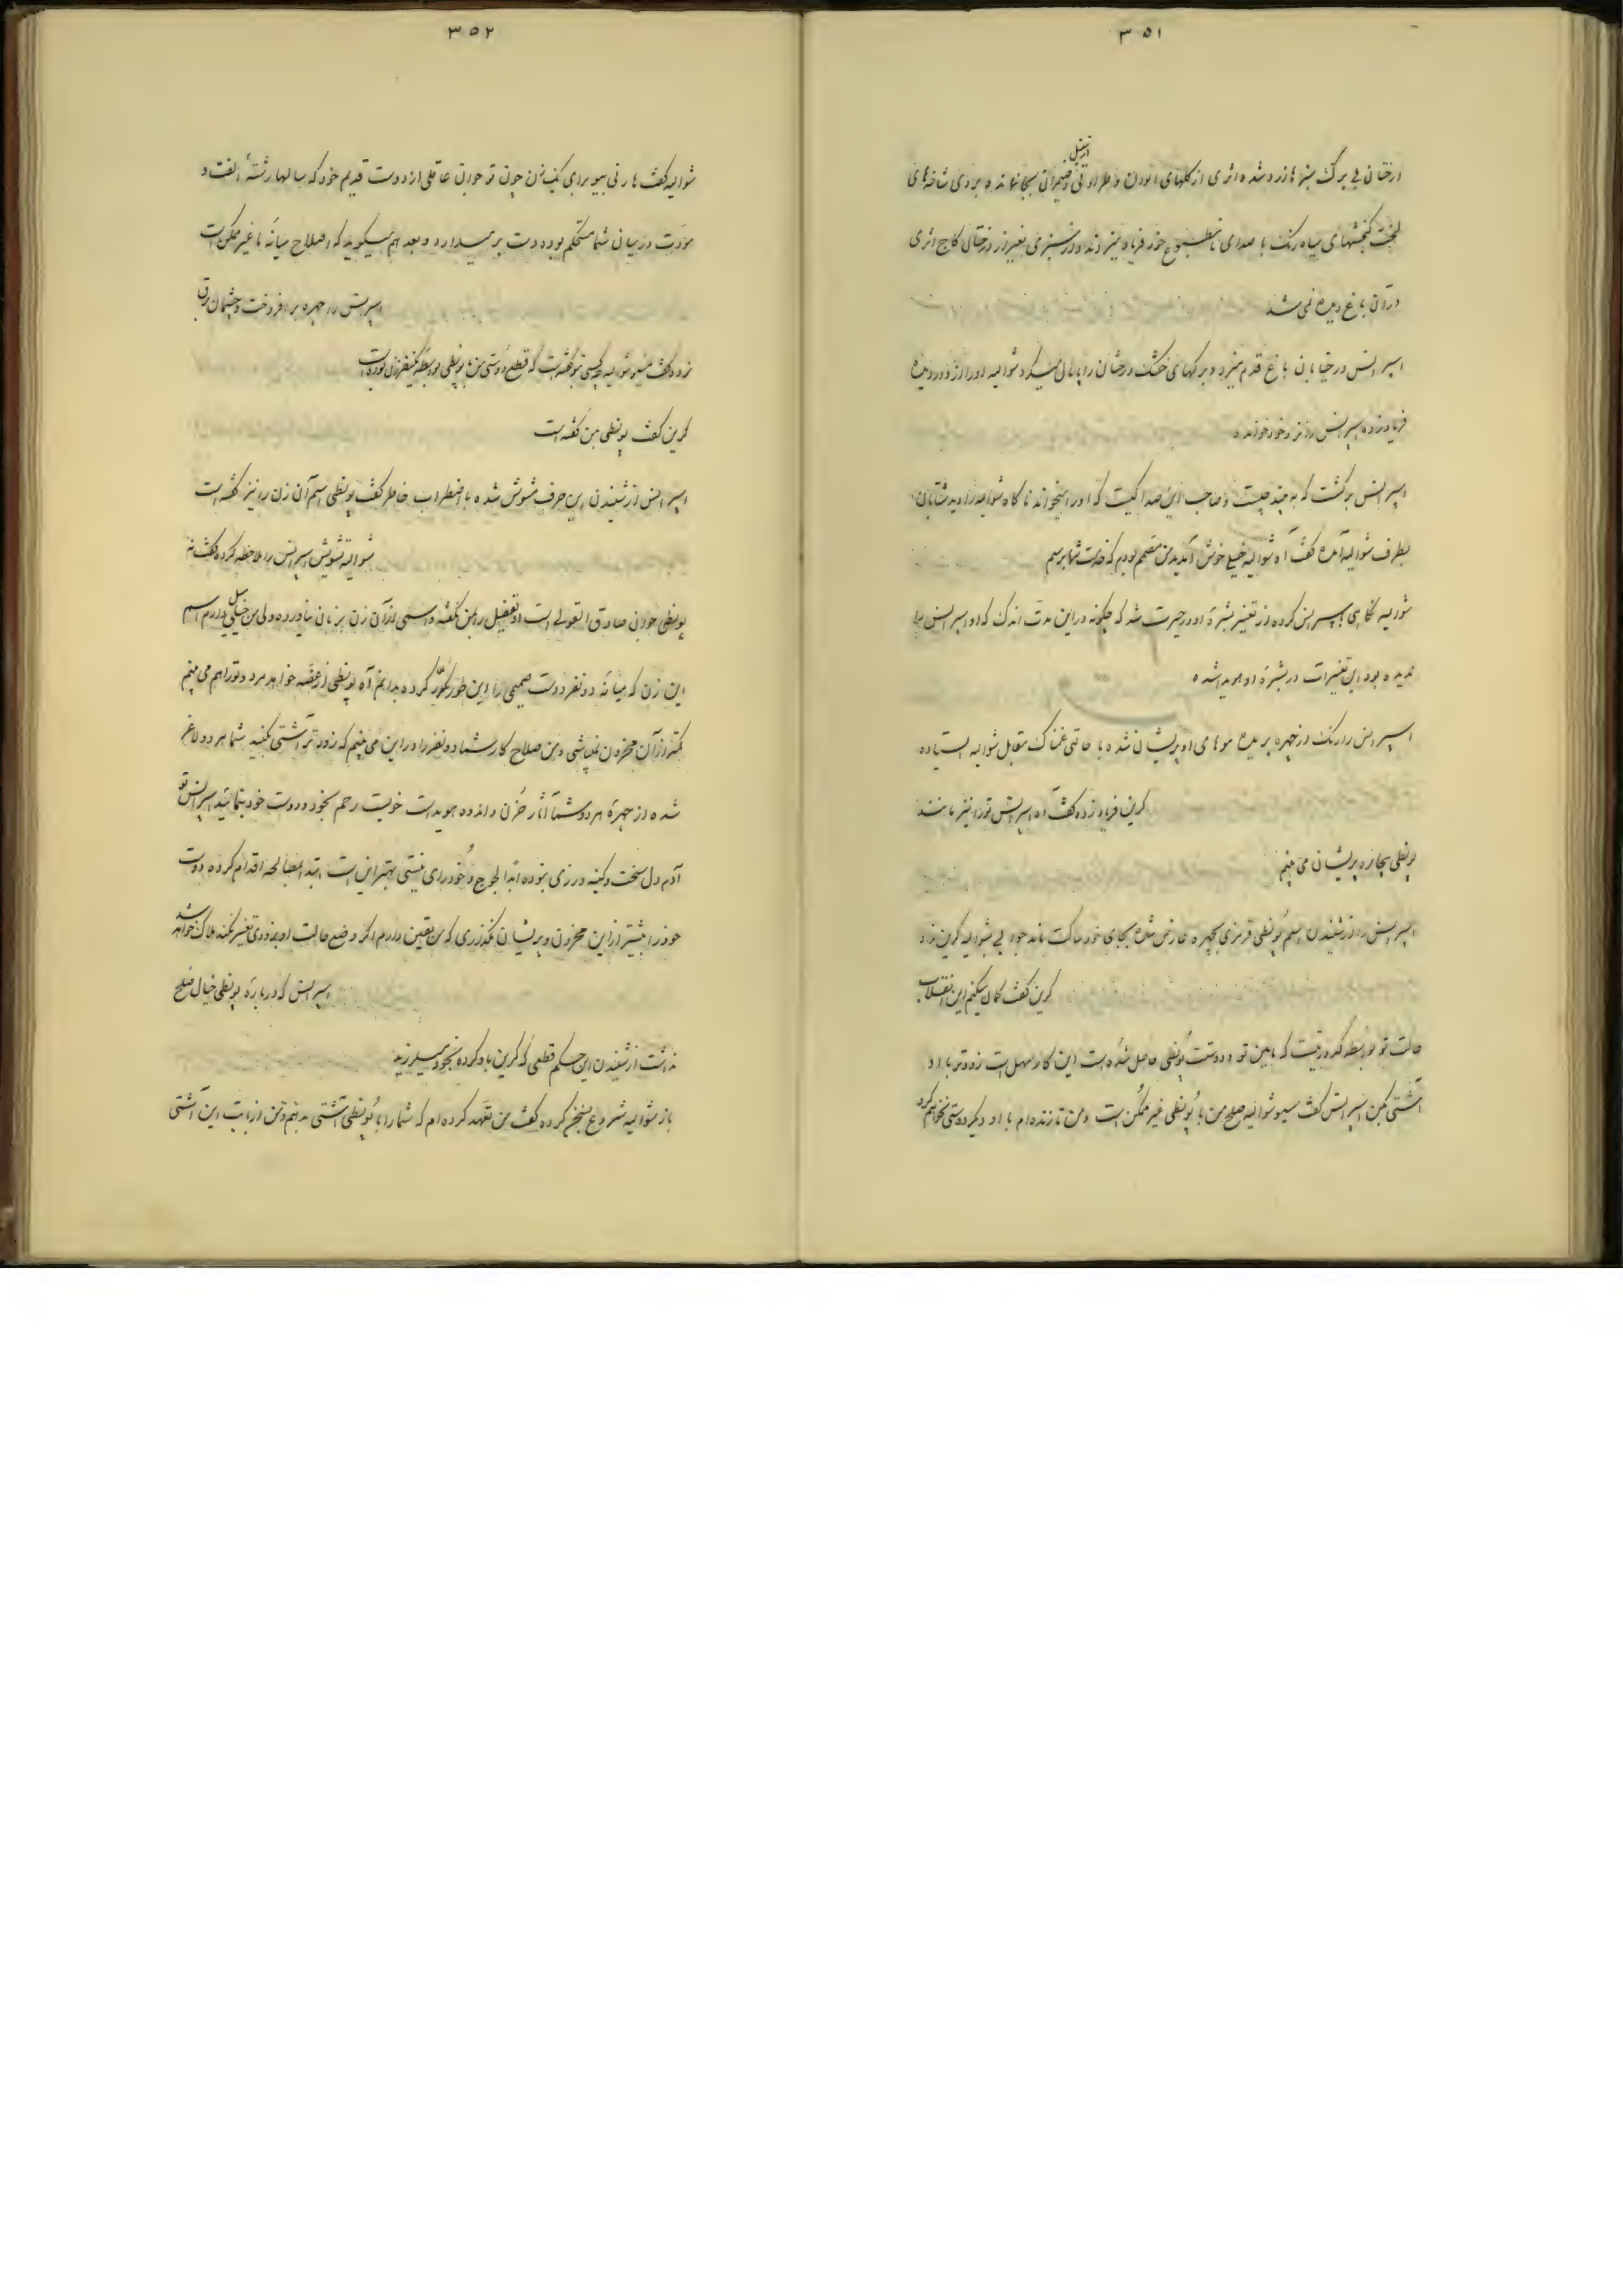 ۳۵۱
درختان بی برگ سبزها زرد شده اثری از گلهای الوان و طراوتی وضیمران بجا نمانده بر روی شاخه‌های
سنبل
لخت گنجشکهای سیاه رنگ با صدای نامطبوع خود فریاد میزدند و از سبزی بغیر از درختان کاج اثری
در آن باغ دیده نمی شد
اسپرانس در خیابان باغ قدم میزد و برگهای خشک درختان را پامال میکرد شوالیه او را از دور دیده
فریاد زده اسپرانس را نزد خود خوانده
اسپرانس برگشت که به بیند چیست و صاحب این صدا کیست که او را میخواند ناگاه شوالیه را دید شتابان
بطرف شوالیه آمده گفت آه شوالیه خیلی خوش آمدید من مصمم بودم که خدمت شما برسم
شوالیه نگاهی باسپرانس کرده از تغییر بشرهٔ او در حیرت شد که چگونه در این مدت اندک که او اسپرانس را
ندیده بود این تغییرات در بشرهٔ او هویدا شده
اسپرانس را رنگ از چهره پریده موهای او پریشان شده با حالتی غمناک مقابل شوالیه ایستاده
کرین فریاد زده گفت آه اسپرانس تو را نیز مانند
پونطی بیچاره پریشان می بینم
اسپرانس را از شنیدن اسم پونطی قرمزی بچهره عارض شده بجای خود ساکت ماند جوابی بشوالیه کرین نداد
کرین گفت گمان میکنم این انقلاب
حالت تو بواسطه کدورتیست که مابین تو و دوستت پونطی حاصل شده است این کار سهل است زودتر با او
آشتی کن اسپرانس گفت مسیو شوالیه صلح من با پونطی غیر ممکن است و من تا زنده‌ام با او دیگر دوستی نخواهم کرد
۳۵۲
شوالیه گفت برای یک زن چون تو جوان عاقلی از دوست قدیم خود که سالها رشتهٔ الفت و
مودت در میان شما مستحکم بوده دست برمیدارد و بعد هم میگوید که اصلاح میانه ما غیر ممکن است
اسپرانس را چهره برافروخت و چشمان برق
زده گفت مسیو شوالیه چه کسی بتو گفته است که قطع دوستی من با پونطی بواسطه یکنفر زن بوده است
کرین گفت پونطی بمن گفته است
اسپرانس از شنیدن این حرف مشوش شده با اضطراب خاطر گفت پونطی اسم آن زن را نیز گفته است
شوالیه تشویش اسپرانس را ملاحظه کرده گفت نه
پونطی جوان صادق القولی است او تفصیل را بمن نگفته و اسمی از آن زن بزبان نیاورده ولی من خیلی میل دارم اسم
این زن که میانه دو نفر دوست صمیمی را این طور مکدر کرده بدانم آه پونطی از غصه خواهد مرد و تو را هم می بینم
کمتر از آن محزون نمیباشی و من صلاح کار شما دو نفر را در این می بینم که زودتر آشتی کنید شما هر دو لاغر
شده از چهرهٔ هر دو شما آثار حزن و اندوه هویداست خوبست رحم بخود و دوست خود بنمائید اسپرانس تو
آدم دل سخت و کینه ورزی نبوده ابداً لجوج و خودرای نیستی بهتر این است ابتدا بمصالحه اقدام کرده دوست
خود را بیشتر از این محزون و پریشان نگذاری که من یقین دارم اگر وضع حالت او بزودی تغییر نکند هلاک خواهد شد
اسپرانس که درباره پونطی خیال صلح
نداشت از شنیدن این حکم قطعی که کرین باو کرده بخود میلرزید
باز شوالیه شروع بسخن کرده گفت من تعهد کرده‌ام که شما را با پونطی آشتی بدهم و من از بابت این آشتی